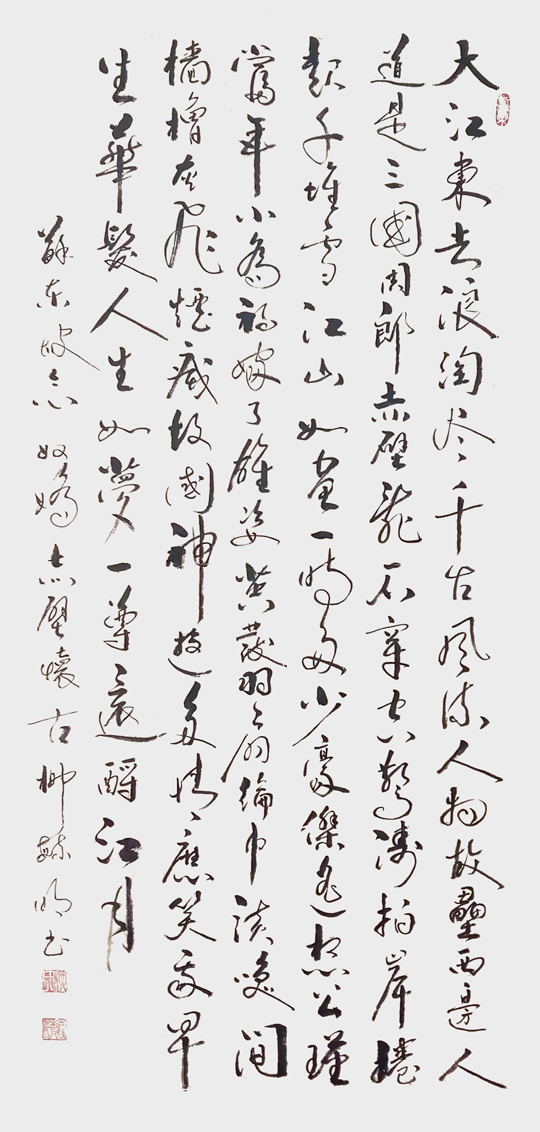 大江東去浪淘尽千古風流人物故壘西邊人
道是三國周郎赤壁亂石穿空驚濤拍岸捲
起千堆雪江山如畫一時多少豪傑遙想公瑾
當年小喬初嫁了雄姿英發羽扇綸巾談笑間
檣櫓灰飛煙滅故國神遊多情應笑我早
生華髮人生如夢一尊還酹江月
蘇東坡念奴嬌赤壁懷古柳毓明书